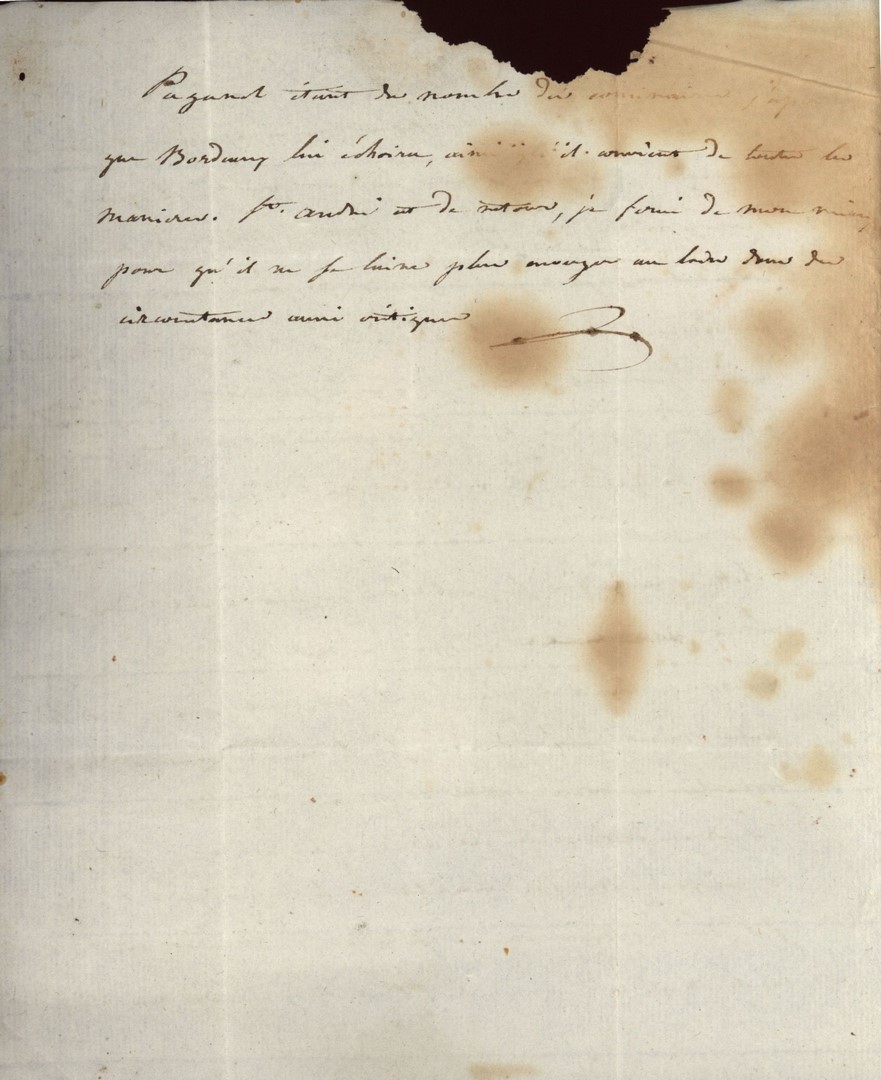 Paganel étant du nombre des commissaires, j'espère
que Bordeaux lui échoira, ainsi qu'il convient de toutes les
manieres. St. andré est de retour, je ferai de mon mieux
pour qu'il ne se laisse plus envoyer au loin dans des
circonstances aussi critiques